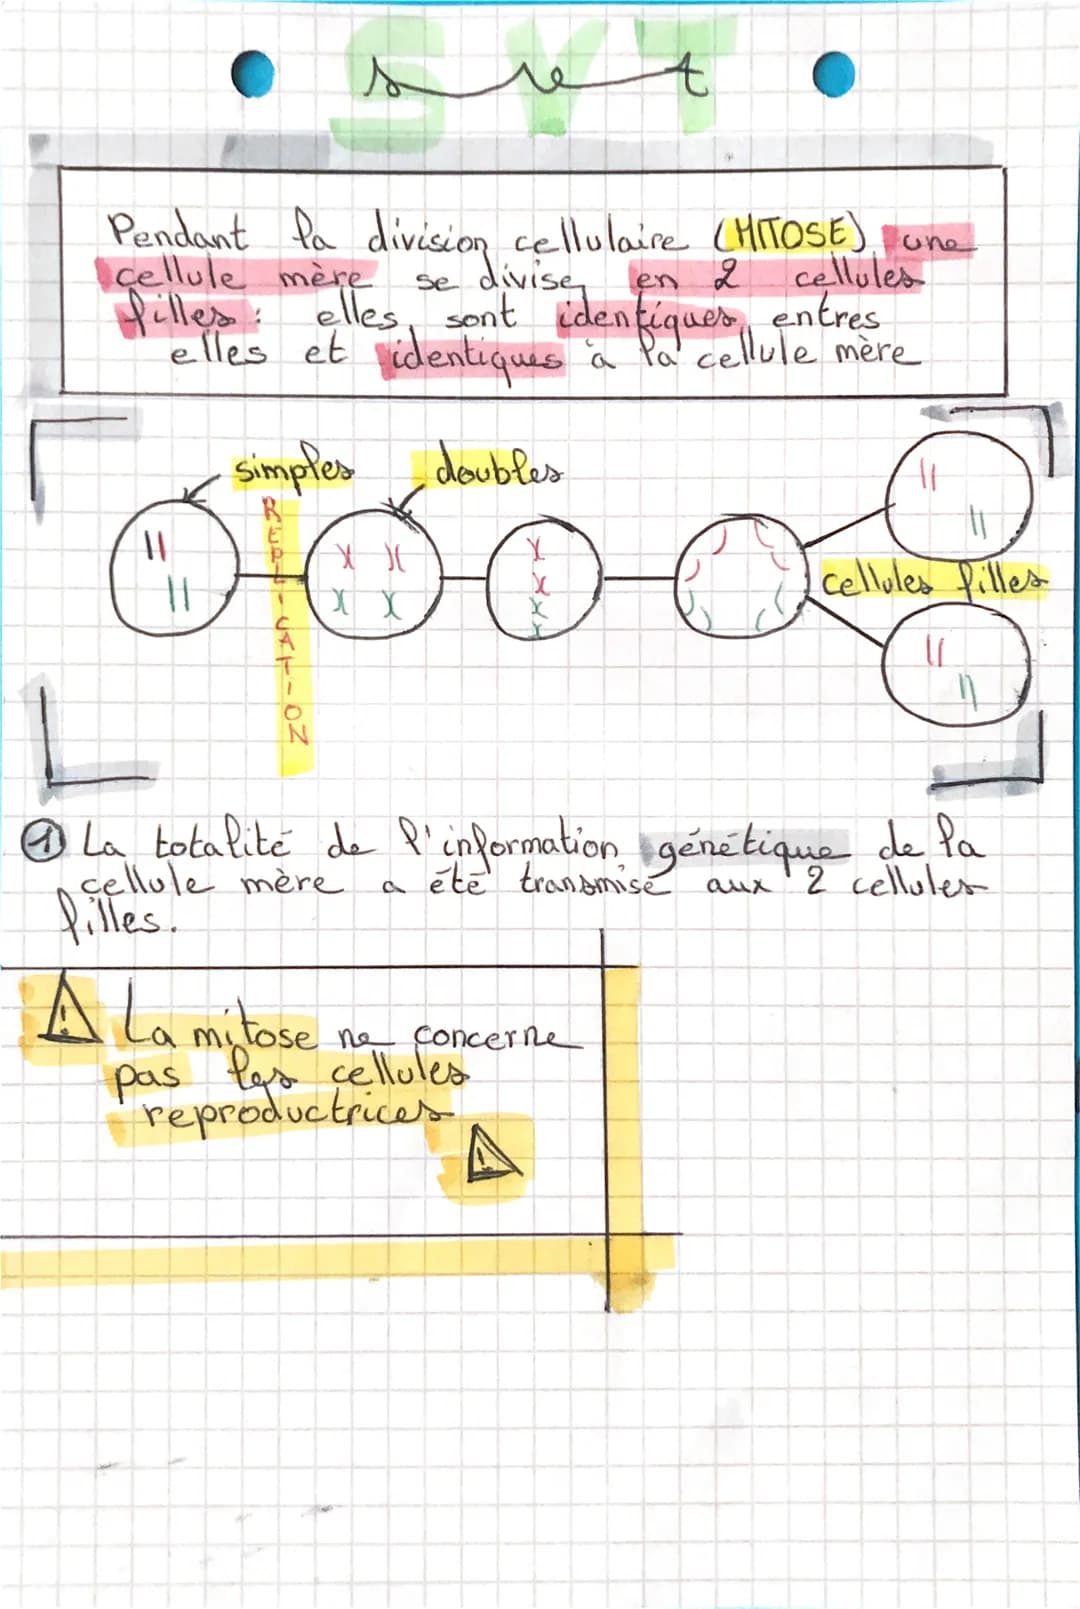 SVT
svt
Pendant la division cellulaire (MITOSE) une
cellule mère se divise en 2 cellules
filles : elles sont identiques entres
elles et identiques à la cellule mère
simples doubles
REPLICATION
cellules filles
1 La totalité de l'information génétique de la
cellule mère a été transmise aux 2 cellules
filles.
⚠ La mitose ne concerne
pas les cellules
reproductrices
⚠